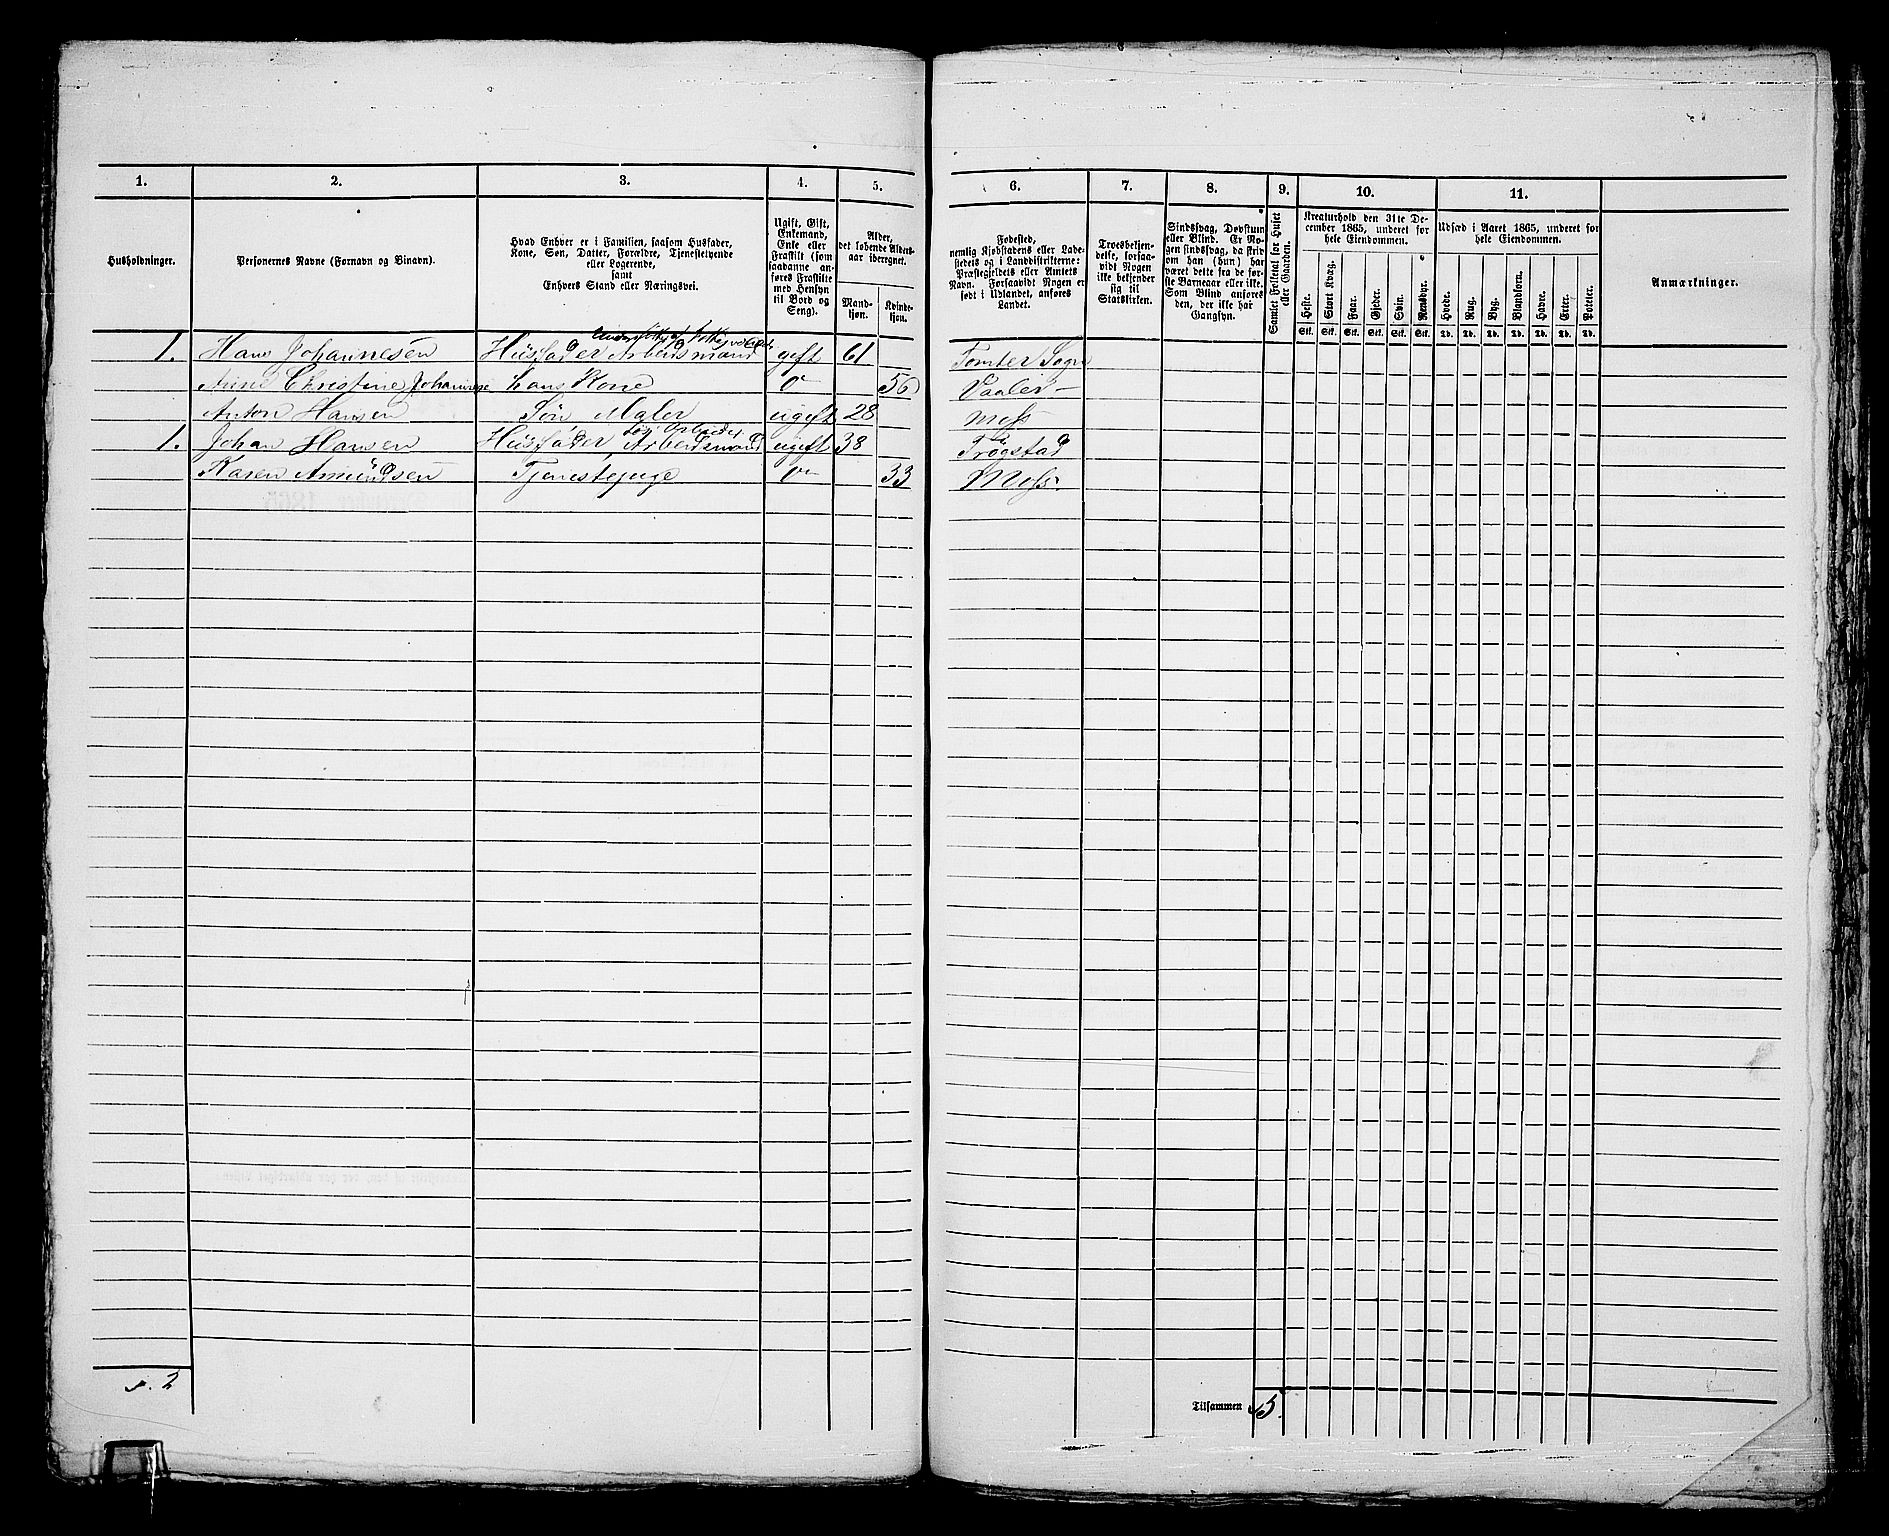 1. 2. 3. 4. 5. 6. 7. 8. 9. 10. 11.
Husholdninger.
Personernes Navne (Fornavn og Binavn).
Hvad Enhver er i Familien, saasom Husfader,
Kone, Søn, Datter, Forældre, Tjenestetyende
eller Logerende,
samt
Enhvers Stand eller Næringsvei.
Ugift, Gift,
Enkemand,
Enke eller
Fraskilt (som
saadanne an-
føres Fraskilte
med Hensyn
til Bord og
Seng).
Alder,
det løbende Alders-
aar iberegnet.
Mand-
kjøn.
Kvinde-
kjøn.
Fødested,
nemlig Kjøbstadens eller Lade-
stedets og i Landdistrikterne:
Præstegjeldets eller Amtets
Navn. Forsaavidt Nogen er
født i Udlandet, anføres
Landet.
Troesbekjen-
delse, forsaa-
vidt Nogen
ikke bekjender
sig til
Statskirken.
Sindssvag, Døvstum
eller Blind. Er No-
gen sindssvag, da skriv
om han (hun) har
været dette fra de før-
ste Barneaar eller ikke.
Som Blind anføres
den, der ikke har
Gangsyn.
Samlet Folketal for Huset
eller Gaarden.
Kreaturhold den 31te De-
cember 1865, underet for
hele Eiendommen.
Heste. Stort Kvæg. Faar. Gjeder. Svin. Rensdyr.
Stk. Stk. Stk. Stk. Stk. Stk.
Udsæd i Aaret 1865, underet for
hele Eiendommen.
Hvede. Rug. Byg. Blandkorn. Havre. Erter. Poteter.
Td. Td. Td. Td. Td. Td. Td.
Anmærkninger.
1. Hans Johannesen Husfader Arbeidsmand gift 61 Tomter Sogn
Anne Christine Johannese hans Kone 56 Vaaler
Anton Hansen Søn Maler ugift 28 Moss
1. Johan Hansen Husfader, Arbeidsmand ugift 38 Trøgstad
Karen Amundsen Tjenestepige 33 Moss.
2
Tilsammen 5.